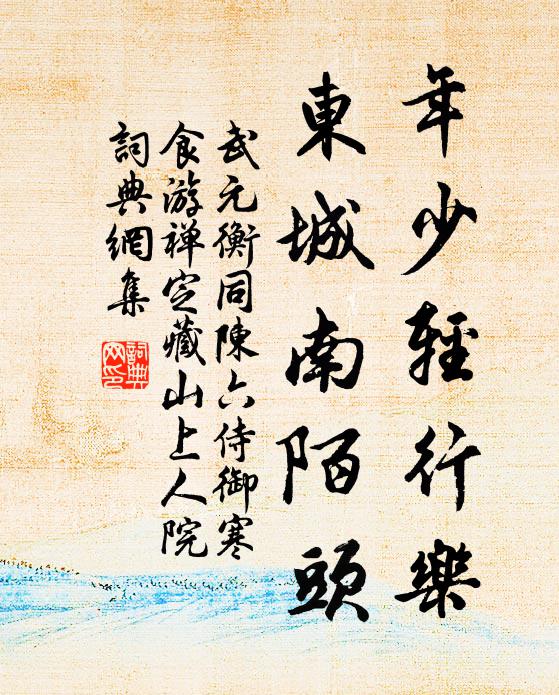 年少輕行樂
東城南陌頭
武元衡同陳六侍御寒
食游禅定藏山上人院
詞典網集
詞典
网印